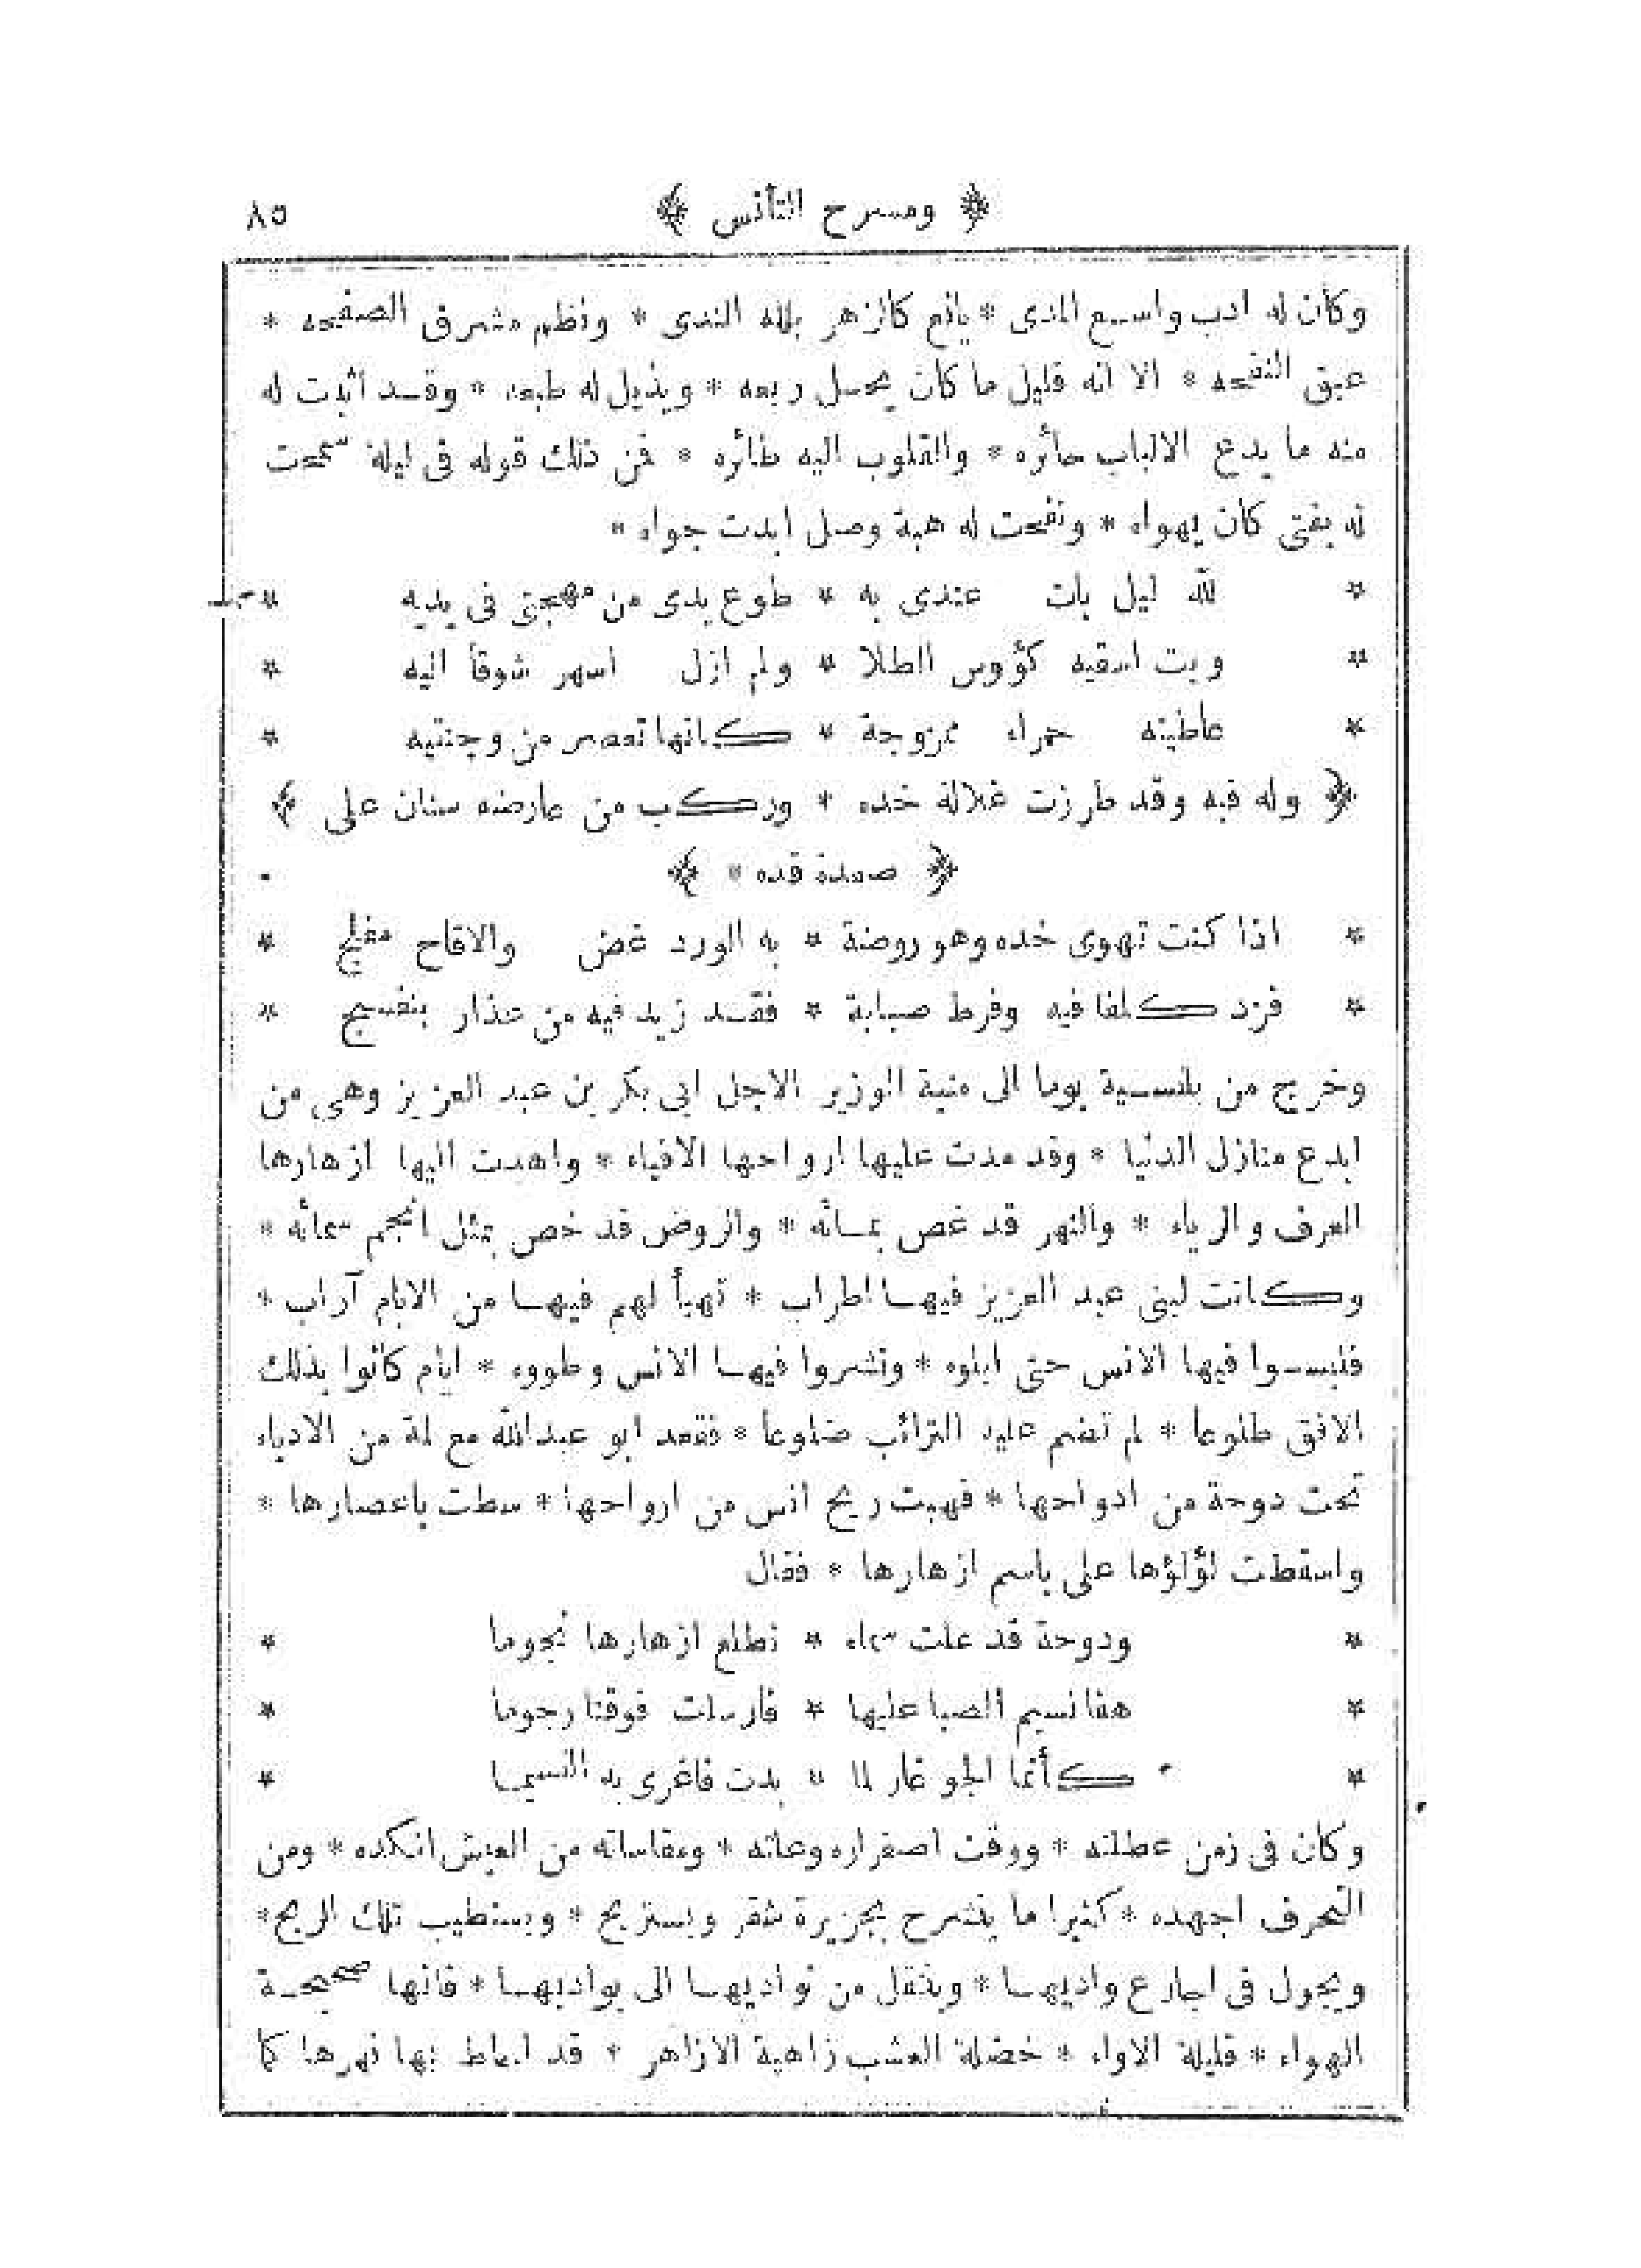 ﴿ ومسرح التأنس ﴾ ٨٥
وكان له ادب واسع المدى * يانع كالزهر بلله الندى * ونظم مشرق الصفحه *
عبق النفحه * الا انه قليل ما كان يحل ربعه * ويذيل له طبعه * وقد أثبت له
منه ما يدع الالباب حائره * والقلوب اليه طائره * فمن ذلك قوله فى ليلة سمحت
له بفتى كان يهواه * ونفحت له هبة وصل ابدت جواه *
* لله ليل بات عندى به * طوع يدى من مهجتى فى يديه *
* وبت اسقيه كؤوس الطلا * ولم ازل اسهر شوقا اليه *
* عاطيته حمراء ممزوجة * كانها تعصر من وجنتيه *
﴿ وله فيه وقد طرزت غلالة خده * وركب من عارضه سنان على ﴾
﴿ صعدة قده * ﴾
* اذا كنت تهوى خده وهو روضة * به الورد غض والاقاح مفلج *
* فزد كلفا فيه وفرط صبابة * فقد زيد فيه من عذار بنفسج *
وخرج من بلنسية يوما الى منية الوزير الاجل ابى بكر بن عبد العزيز وهى من
ابدع منازل الدنيا * وقد مدت عليها ارواحها الافياء * واهدت اليها ازهارها
العرف والرياء * والنهر قد غص بمائه * والروض قد خص بمثل انجم سمائه *
وكانت لبنى عبد العزيز فيها اطراب * تهيأ لهم فيها من الايام آراب *
فلبسوا فيها الانس حتى ابلوه * ونشروا فيها الانس وطووه * ايام كانوا بذلك
الافق طلوعا * لم تضم عليه الترائب ضلوعا * فقعد ابو عبدالله مع لمة من الادباء
تحت دوحة من ادواحها * فهبت ريح انس من ارواحها * سطت باعصارها *
واسقطت لؤلؤها على باسم ازهارها * فقال
* ودوحة قد علت سماء * تطلع ازهارها نجوما *
* هفا نسيم الصبا عليها * فارسلت فوقنا رجوما *
* كأنما الجو غار لما * بدت فاغرى به النسيما *
وكان فى زمن عطلته * ووقت اصفراره وعلته * ومقاساته من العيش انكده * ومن
التحرف اجهده * كثيرا ما ينشرح بجزيرة شقر ويستريح * ويستطيب تلك الريح *
ويجول فى اجارع واديها * وينتقل من نواديها الى بواديها * فانها صحيحة
الهواء * قليلة الاواء * خضلة العشب زاهية الازاهر * قد احاط بها نهرها كما